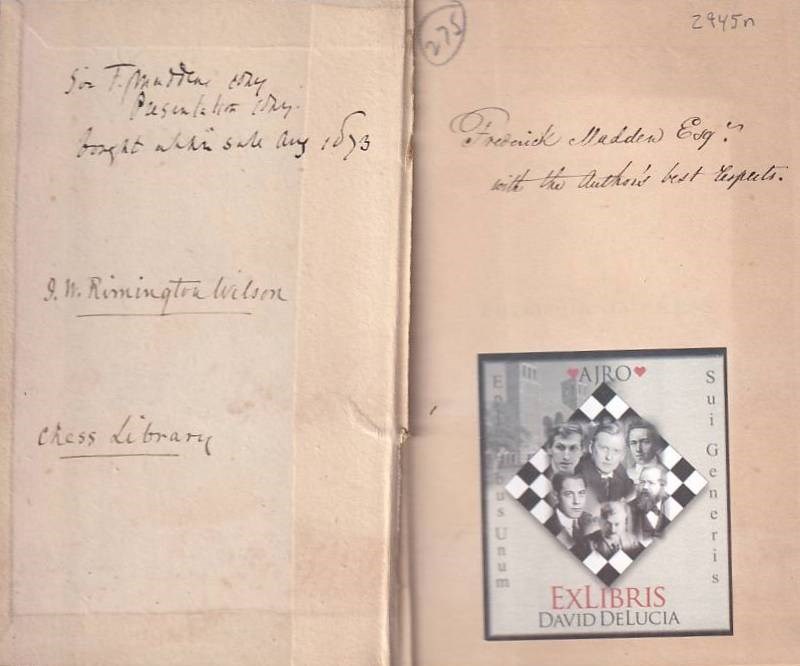 Sir F. Madden's copy
Presentation copy.
bought at his sale Aug 1873
J. W. Rimington Wilson
Chess Library
275
2945n
Frederick Madden Esqre
with the Author's best respects.
AJRO
E Pluribus Unum
Sui Generis
EXLIBRIS
DAVID DELUCIA